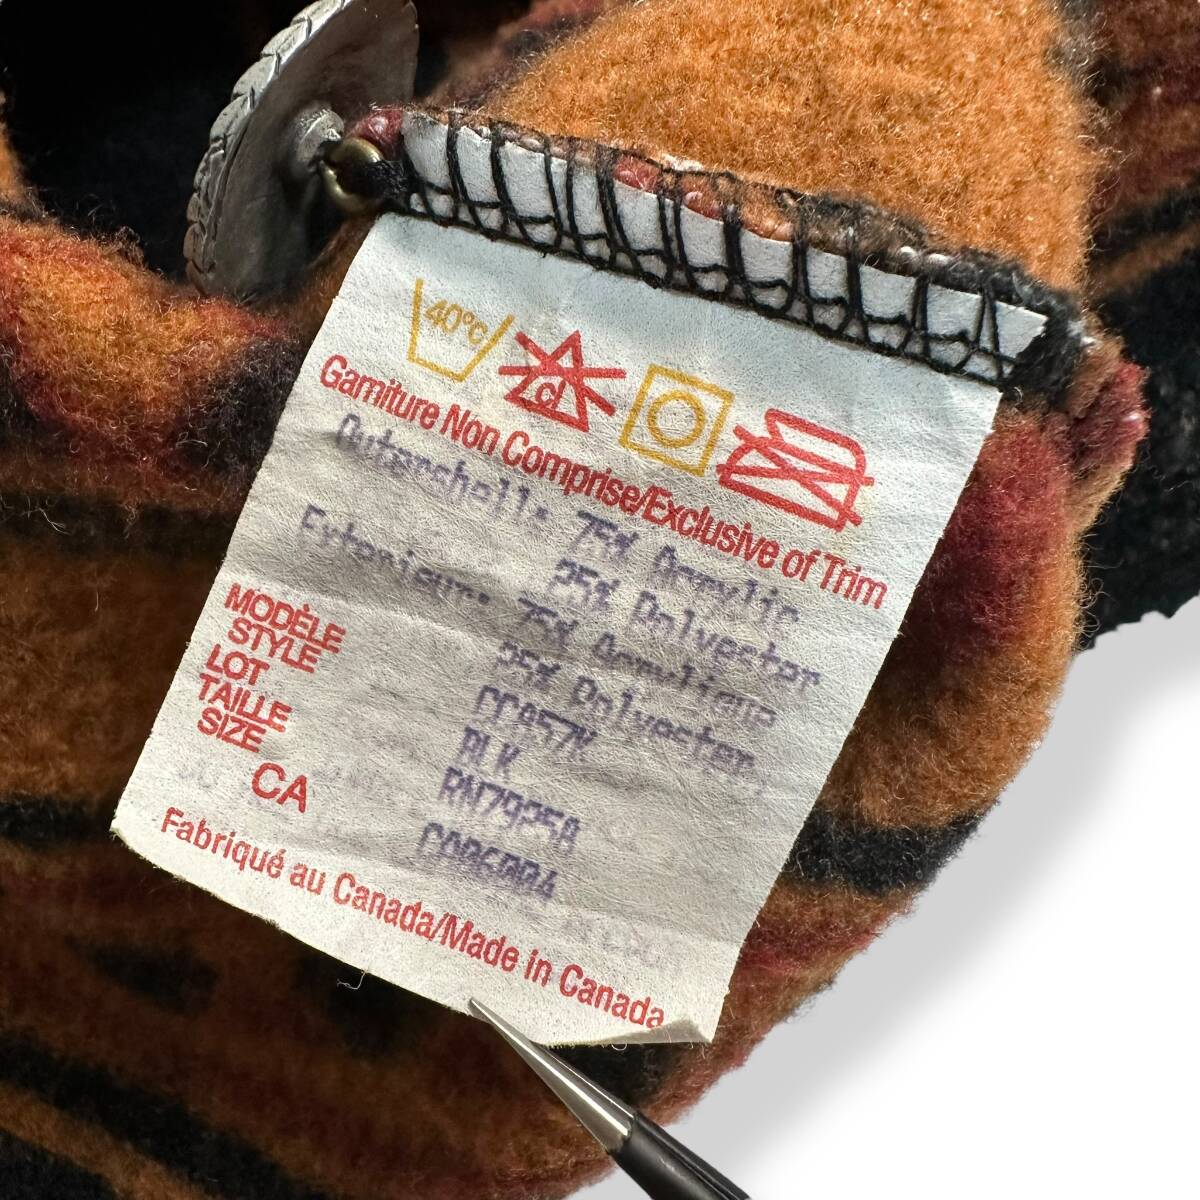 40°C
cl
Garniture Non Comprise/Exclusive of Trim
Outershell: 75% Acrylic
25% Polyester
Exterieur: 75% Acrylique
25% Polyester
MODÈLE
STYLE
LOT
TAILLE
SIZE
BLK
CA
Fabriqué au Canada/Made in Canada